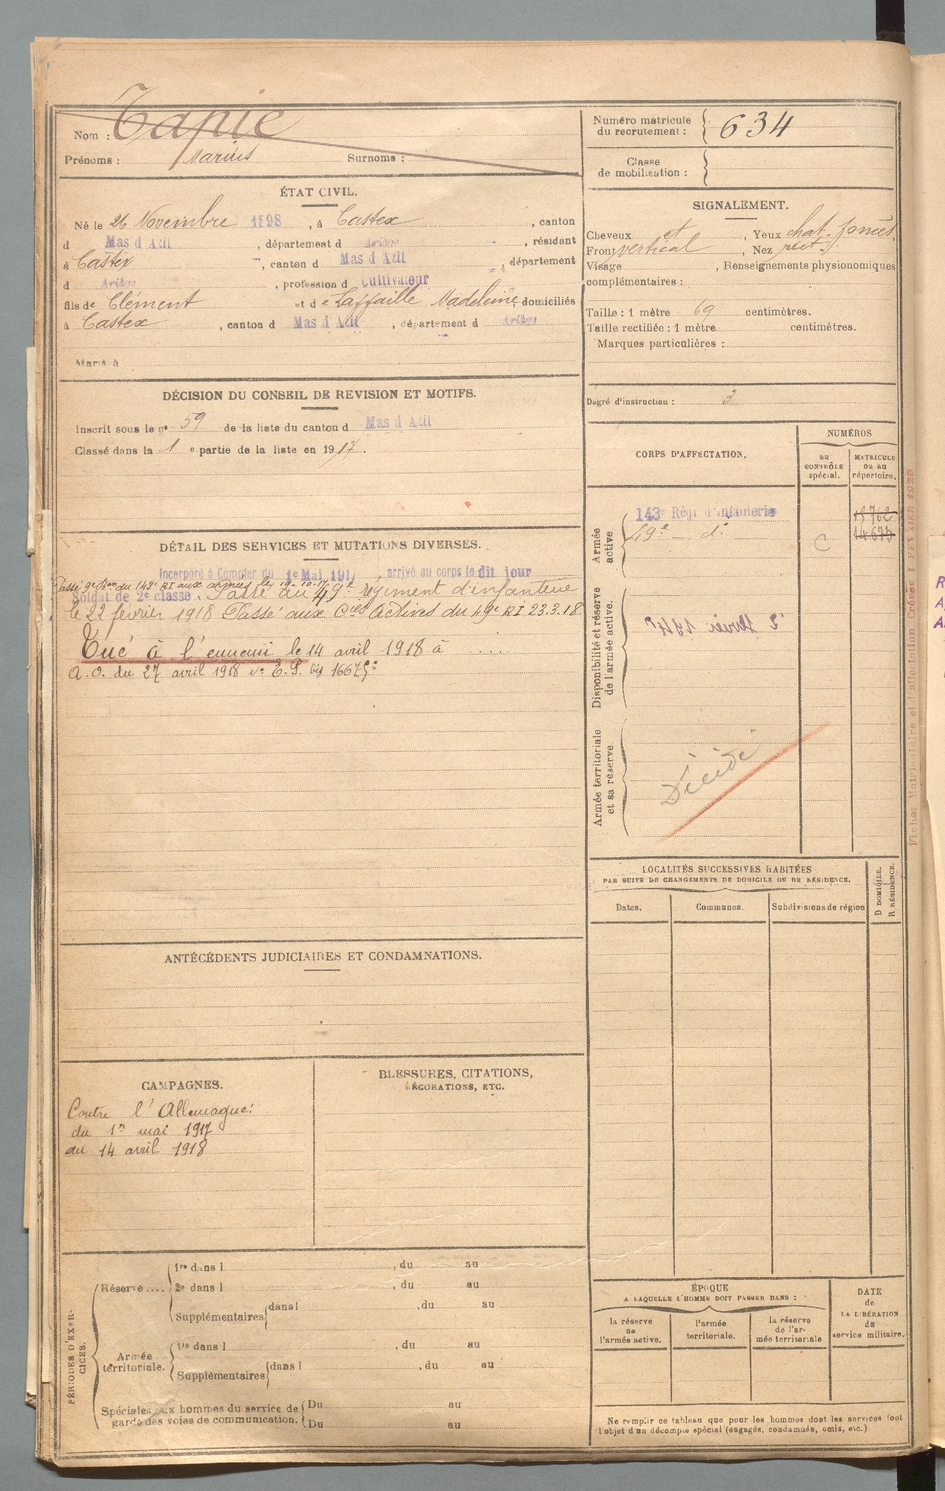 Nom : Tapie
Prénoms : Marius Surnoms :
Numéro matricule du recrutement : 634
Classe de mobilisation :
ÉTAT CIVIL.
Né le 26 Novembre 1898, à Castex, canton
d Mas d Azil, département d Ariège, résidant
à Castex, canton d Mas d Azil, département
d Ariège, profession d Cultivateur
fils de Clément et de Laffaille Madeleine, domiciliés
à Castex, canton d Mas d Azil, département d Ariège
Marié à
SIGNALEMENT.
Cheveux et, Yeux chat. foncés
Front vertical, Nez rect.
Visage, Renseignements physionomiques
complémentaires :
Taille : 1 mètre 69 centimètres.
Taille rectifiée : 1 mètre centimètres.
Marques particulières :
Degré d'instruction : 3
DÉCISION DU CONSEIL DE REVISION ET MOTIFS.
Inscrit sous le no 59 de la liste du canton d Mas d Azil
Classé dans la 1 e partie de la liste en 1917.
DÉTAIL DES SERVICES ET MUTATIONS DIVERSES.
Incorporé à Compter du 1er Mai 191, arrivé au corps le dit jour
Passé 9e Bon du 143e RI aux armées le 19.10.17
Soldat de 2e classe. Passé au 49e régiment d'infanterie
le 22 février 1918 Passé aux Cies actives du 49e RI 23.3.18
Tué à l'ennemi le 14 avril 1918 à .....
A.O. du 27 avril 1918 no E.P. bis 1667
CORPS D'AFFECTATION.
NUMÉROS
au CONTRÔLE spécial.
MATRICULE ou au répertoire.
Armée active
143e Régt d'Infanterie
49e - do
C
14673
Disponibilité et réserve de l'armée active.
Armée territoriale et sa réserve.
Décédé
Fiches Matriculaire et d'affectation Créées
LOCALITÉS SUCCESSIVES HABITÉES
PAR SUITE DE CHANGEMENTS DE DOMICILE OU DE RÉSIDENCE.
D DOMICILE.
R RÉSIDENCE.
Dates. Communes. Subdivisions de région
ANTÉCÉDENTS JUDICIAIRES ET CONDAMNATIONS.
CAMPAGNES.
Contre l'Allemagne:
du 1er mai 1917
au 14 avril 1918
BLESSURES, CITATIONS,
DÉCORATIONS, ETC.
PÉRIODES D'EXERCICES.
Réserve ....
1re dans l , du au
2e dans l , du au
Supplémentaires dans l , du au
Armée territoriale.
1re dans l , du au
Supplémentaires dans l , du au
Spéciales aux hommes du service de garde des voies de communication.
Du au
Du au
ÉPOQUE
A LAQUELLE L'HOMME DOIT PASSER DANS :
la réserve de l'armée active.
l'armée territoriale.
la réserve de l'armée territoriale
DATE de LA LIBÉRATION du service militaire.
Ne remplir ce tableau que pour les hommes dont les services font
l'objet d'un décompte spécial (engagés, condamnés, omis, etc.).